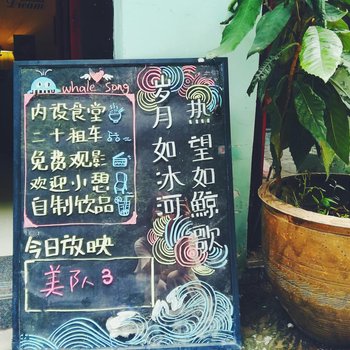 Dream
whale song
内设食堂
二十租车
免费观影
欢迎小憩
自制饮品
今日放映
美队3
岁月如冰河
热望如鲸歌